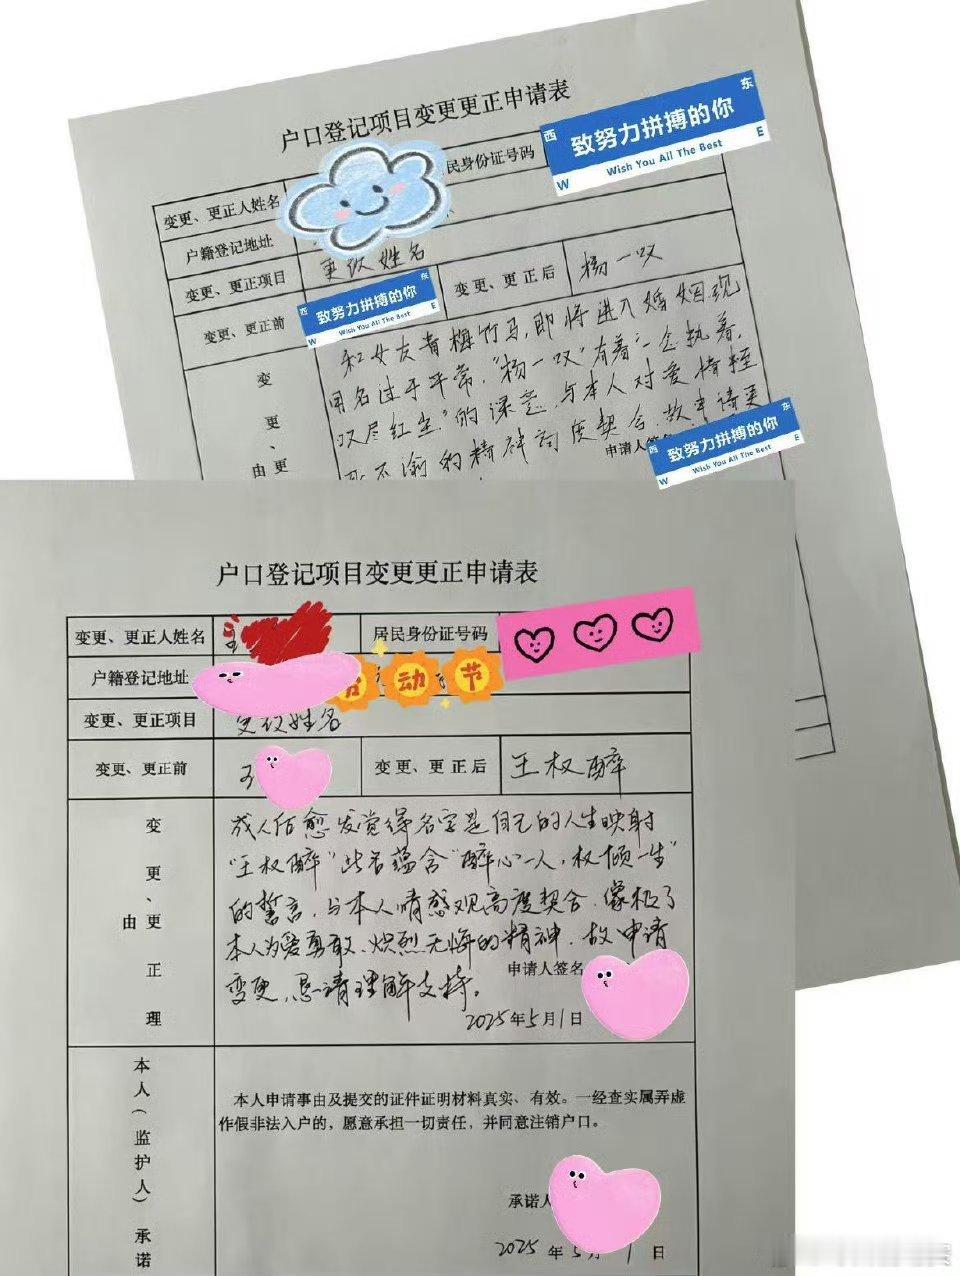 户口登记项目变更更正申请表
变更、更正人姓名
民身份证号码
西 致努力拼搏的你 东
W Wish You All The Best E
户籍登记地址
变更、更正项目 更改姓名
变更、更正前
西 致努力拼搏的你 东
Wish You All The Best E
变更、更正后 杨一叹
变更、更
由
和女友青梅竹马,即将进入婚姻现
用名过于平常,"杨一叹"有着"一念执着,
叹尽红尘"的深意,与本人对爱情至
死不渝的精神高度契合,故申请更
申请人签名
致努力拼搏的你 东
W Wish You All The Best E
户口登记项目变更更正申请表
变更、更正人姓名 居民身份证号码
户籍登记地址 劳动节
变更、更正项目 更改姓名
变更、更正前 王 变更、更正后 王权醉
变更、更正理由
成人后愈发觉得名字是自己的人生映射
"王权醉"此名蕴含"醉心一人,权倾一生"
的誓言,与本人情感观高度契合,像极了
本人为爱勇敢、炽烈无悔的精神,故申请
变更,恳请理解支持。
申请人签名
2025年5月1日
本人(监护人)承诺
本人申请事由及提交的证件证明材料真实、有效。一经查实属弄虚
作假非法入户的,愿意承担一切责任,并同意注销户口。
承诺人
2025年5月1日